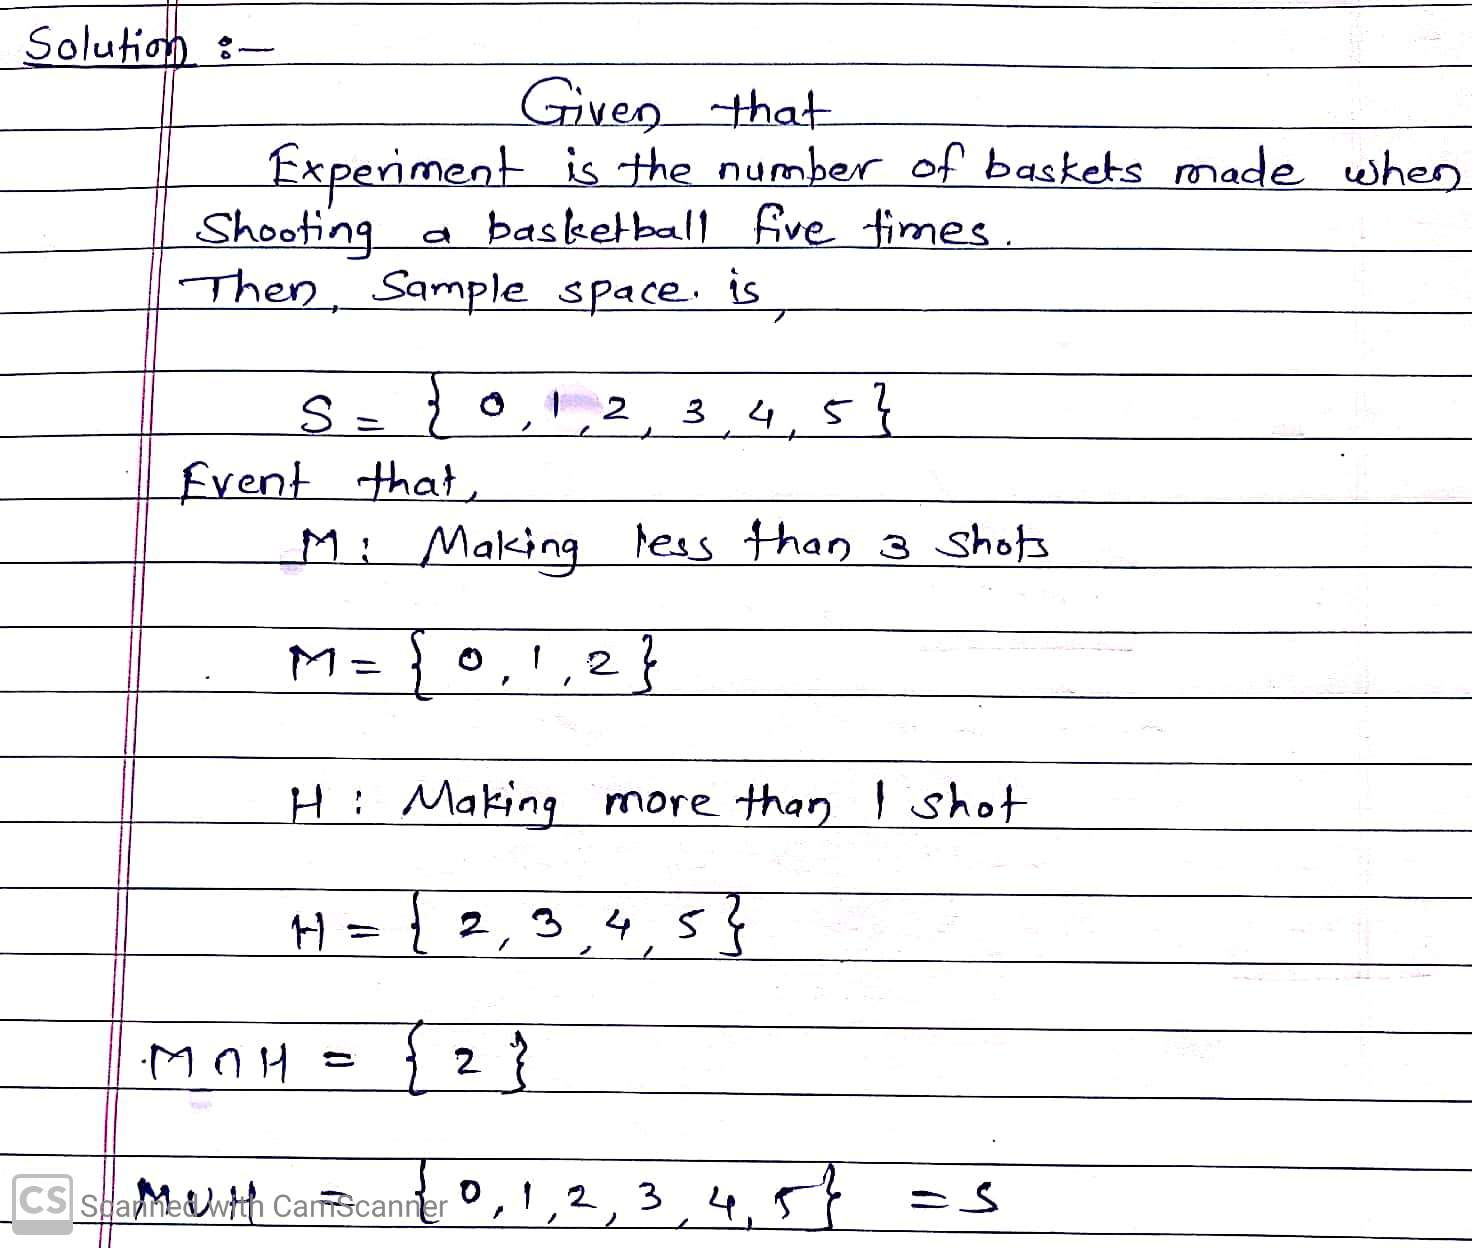 Solution :-
Given that
Experiment is the number of baskets made when
Shooting a basketball five times.
Then, Sample space. is,
S = { 0, 1, 2, 3, 4, 5 }
Event that,
M : Making less than 3 shots
M = { 0, 1, 2 }
H : Making more than 1 shot
H = { 2, 3, 4, 5 }
M ∩ H = { 2 }
M ∪ H = { 0, 1, 2, 3, 4, 5 } = S
CS Scanned with CamScanner